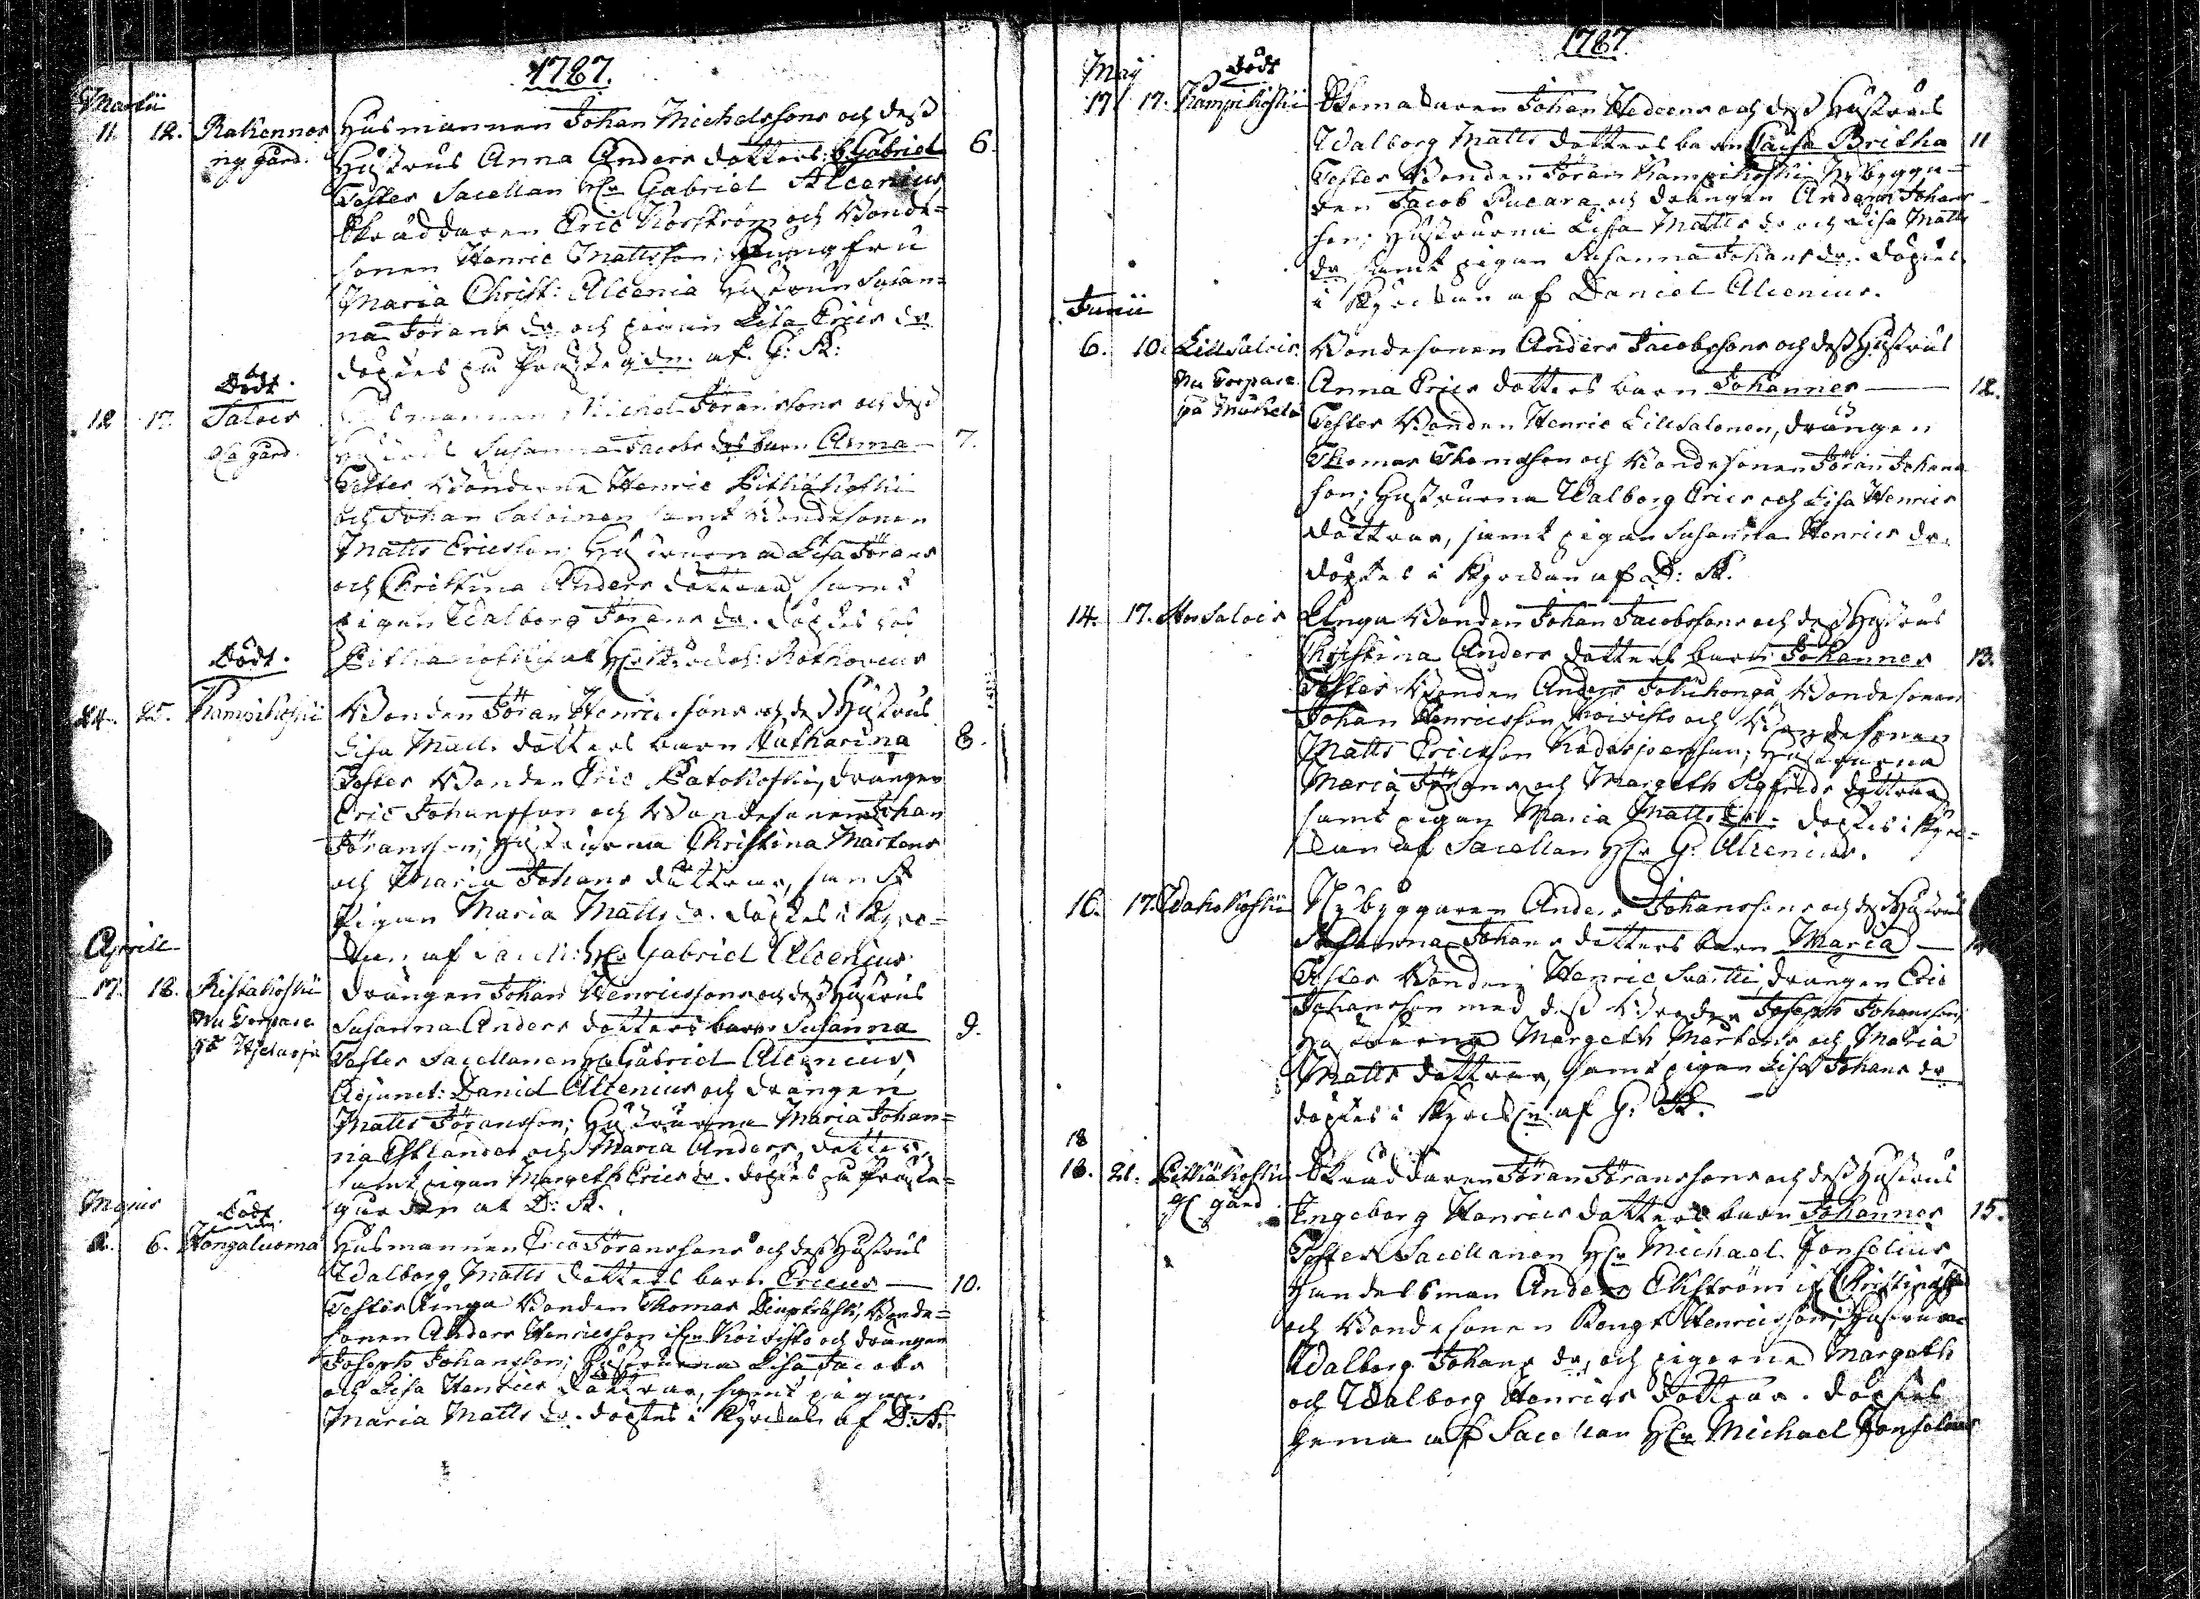 1787.
Martii
11. 12. Rakennos Husmannen Johan Michelssons och dess
ny gård. Hustrus Anna Anders dotters: b. Gabriel 6.
Testes Sacellan Hr Gabriel Alcenius
Skräddaren Eric Korström och Bonde=
sonen Henric Mattsson; Jungfru
Maria Christ: Alcenia Hustrun Susan=
na Jörans dr och pigan Lisa Erics dr
döptes på Prästegdn. af G: A:
Dödt.
12 17. Salois husmannen Michel Jöranssons och dess
gård. Hustrus Susanna Jacobs drs barn Anna 7.
Testes Bönderne Henric Pitkäkoski
och Johan Saloinen samt Bondesonen
Matts Ericsson; Hustrurna Lisa Jörans
och Christina Anders döttrar, samt
pigan Walborg Jörans dr. döptes hos
Pitkäkoski af Hr
Dödt.
24. 25. Kampikoski Bonden Jöran Henricssons och dess Hustrus
Lisa Matts dotters barn Catharina 8.
Testes Bonden Eric Patokoski, drängen
Eric Johansson och Bondesonen Johan
Jöransson; Hustrurna Christina Mårtens
och Maria Johans döttrar, samt
Pigan Maria Matts dr. döptes i Kyrc=
kan af Sacell: Hr Gabriel Alcenius.
Aprill
17. 18. Ristakoski drängen Johan Henricssons och dess Hustrus
Nu Torpare Susanna Anders dotters barn Susanna 9.
på Testes Sacellanen Hr Gabriel Alcenius
Adjunct: Daniel Alcenius och drängen
Matts Jöransson; Hustrurna Maria Johan=
na Estlander och Maria Anders dotter,
samt pigan Margeth Erics dr. döptes på Präste=
gården af D: A.
Majus Dödt
6. Kangaluoma Husmannen Eric Jöranssons och dess Hustrus
Walborg Matts dotters barn Ericus 10.
Testes Unga Bonden Thomas Bonde=
sonen Anders Henricsson Koivisto och drängen
Joseph Johansson; Hustrurna Lisa Jacobs
och Lisa Henrics döttrar, samt pigan
Maria Matts dr. döptes i Kyrckan af D: A.
1787.
May Dödt
17 17. Kampikoski Skomakaren Johan Hedeens och dess Hustrus
Walborg Matts dotters barn Caisa Britha 11
Testes Bonden Jöran Kampikoski Nybygga=
ren Jacob Pucara och drängen Anders Johans=
son; Hustrurna Lisa Matts dr och Lisa Matts
dr samt pigan Susanna Johans dr. döptes
i Kyrckan af Daniel Alcenius.
Junii
6. 10. Lillsalois. Bondesonen Anders Jacobssons och dess Hustrus
Nu Torpare Anna Erics dotters barn Johannes 12.
på Testes Bonden Henric Lillsalonen, drängen
Thomas Thomasson och Bondesonen Jöran Johans
son; Hustrurna Walborg Erics och Lisa Henrics
döttrar, samt pigan Susanna Henrics dr.
döptes i Kyrckan af D: A.
14. 17. Salois Unga Bonden Johan Jacobssons och dess Hustrus
Christina Anders dotters barn Johannes 13.
Testes Bonden Anders Bondesonen
Johan Henricsson Koivisto och Bondesonen
Matts Ericsson Hustrurna
Maria Jörans och Margeth Sigfrids döttrar
samt pigan Maria Matts dr. döptes i Kyrc=
kan af Sacellan Hr G. Alcenius.
16. 17. Nybyggaren Anders Johanssons och dess Hustrus
Susanna Johans dotters barn Maria
Testes Bonden Henric Svartti, drängen Eric
Johansson med dess Broder Joseph Johansson;
Hustrurna Margeth Mårtens och Maria
Matts döttrar, samt pigan Lisa Johans dr
döptes i Kyrckan af G: A.
18
18. 21. Pitkäkoski Skräddaren Jöran Jöranssons och dess Hustrus
gård Ingeborg Henrics dotters barn Johannes 15.
Testes Sacellanen Hr Michael Forselius
Handelsman Anders Ekström
och Bondesonen Bengt Henricsson; Hustrun
Walborg Johans dr, och pigorna Margeth
och Walborg Henrics döttrar. döptes
hema af Sacellan Hr Michael Forselius